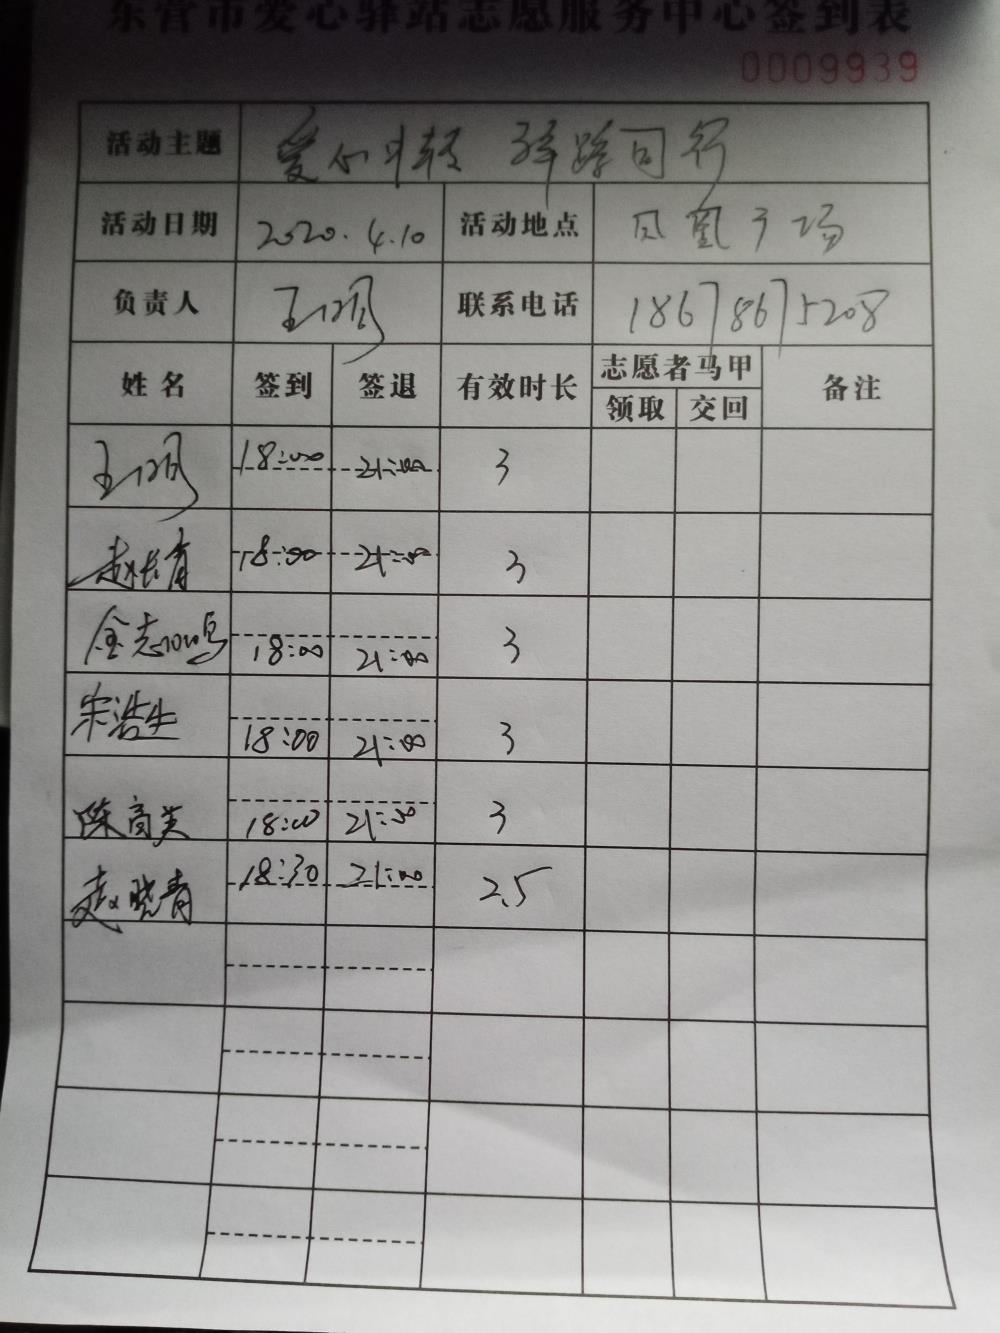 东营市爱心驿站志愿服务中心签到表
0009939
活动主题 爱心 驿路同行
活动日期 2020.4.10 活动地点 凤凰广场
负责人 联系电话 18678675208
姓名 签到 签退 有效时长 志愿者马甲 备注
领取 交回
18:00 21:00 3
赵长青 18:00 21:00 3
金志鸣 18:00 21:00 3
宋浩生 18:00 21:00 3
陈高美 18:00 21:00 3
赵晓青 18:30 21:00 2.5